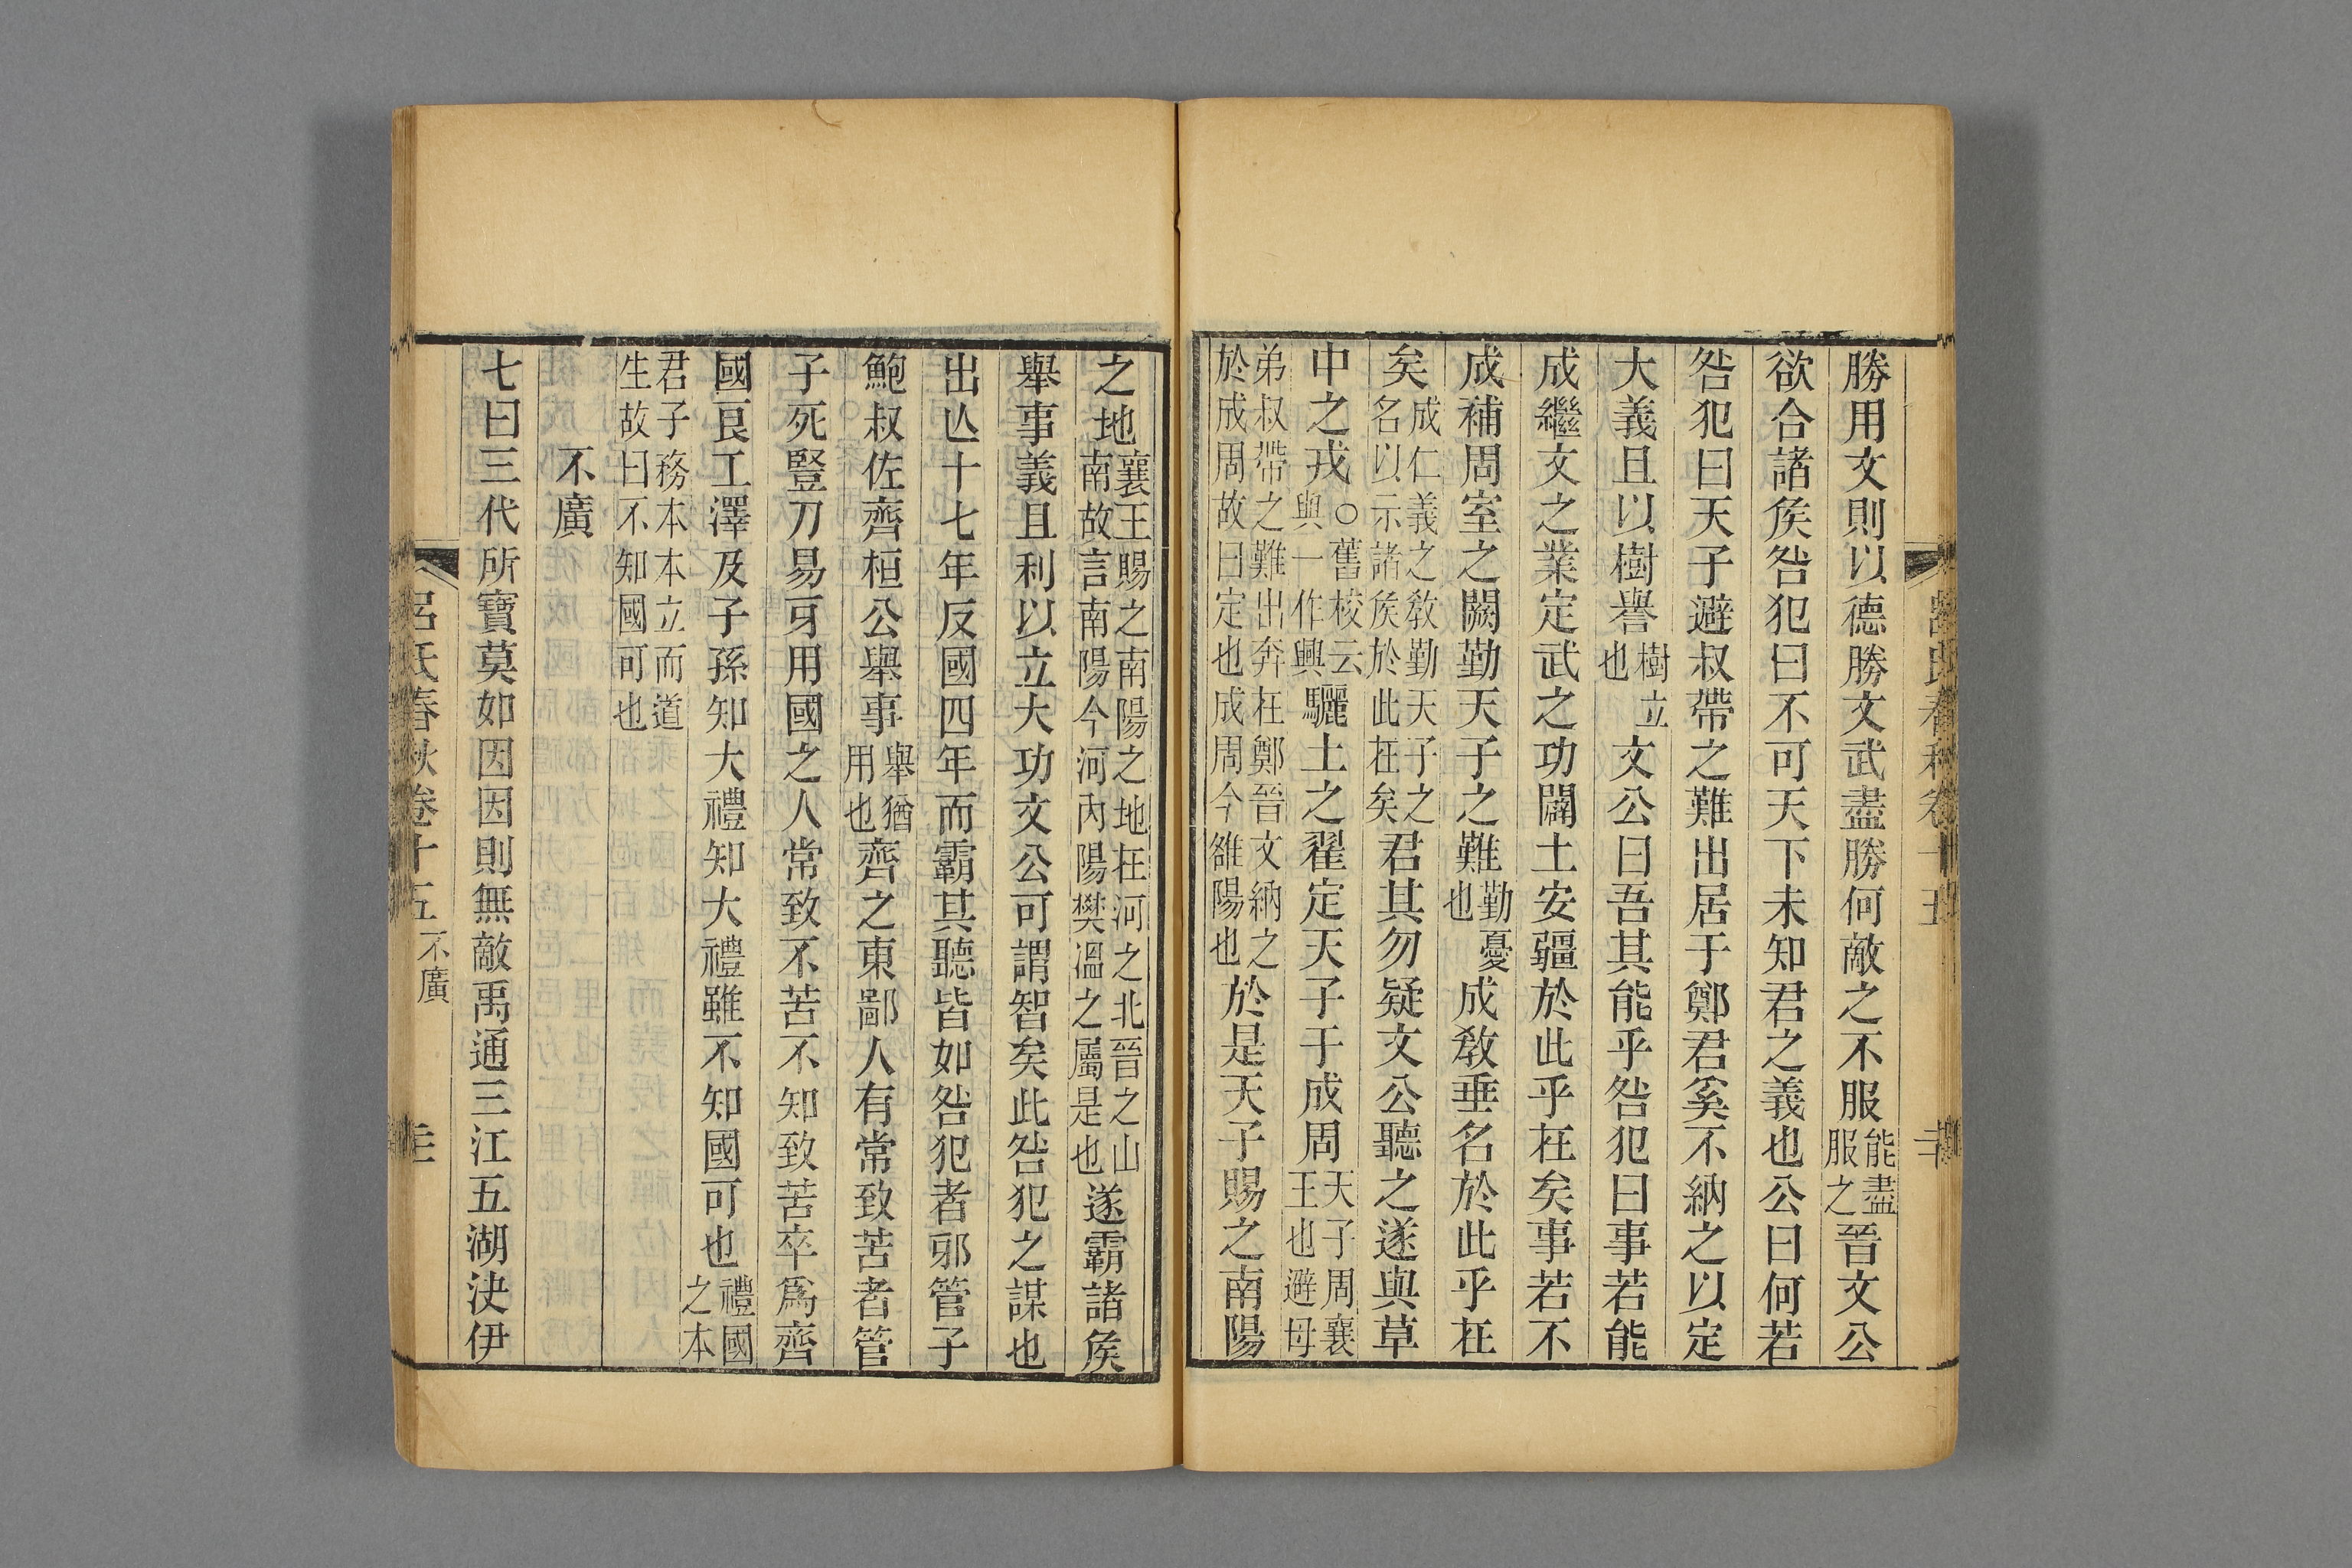 勝用文則以德勝文武盡勝何敵之不服能盡服之晉文公
欲合諸矦咎犯曰不可天下未知君之義也公曰何若
咎犯曰天子避叔帶之難出居于鄭君奚不納之以定
大義且以樹譽樹立也文公曰吾其能乎咎犯曰事若能
成繼文之業定武之功闢土安疆於此乎在矣事若不
成補周室之闕勤天子之難勤憂也成教垂名於此乎在
矣成仁義之教勤天子之名以示諸矦於此在矣君其勿疑文公聽之遂與草
中之戎○舊校云與一作興驪土之翟定天子于成周天子周襄王也避母
弟叔帶之難出奔在鄭晉文納之於成周故曰定也成周今雒陽也於是天子賜之南陽
之地襄王賜之南陽之地在河之北晉之山南故言南陽今河內陽樊溫之屬是也遂霸諸矦
舉事義且利以立大功文公可謂智矣此咎犯之謀也
出亾十七年反國四年而霸其聽皆如咎犯者邪管子
鮑叔佐齊桓公舉事舉猶用也齊之東鄙人有常致苦者管
子死豎刀易牙用國之人常致不苦不知致苦卒爲齊
國良工澤及子孫知大禮知大禮雖不知國可也禮國之本
君子務本本立而道生故曰不知國可也
不廣
七曰三代所寶莫如因因則無敵禹通三江五湖決伊
呂氏春秋卷十五 不廣